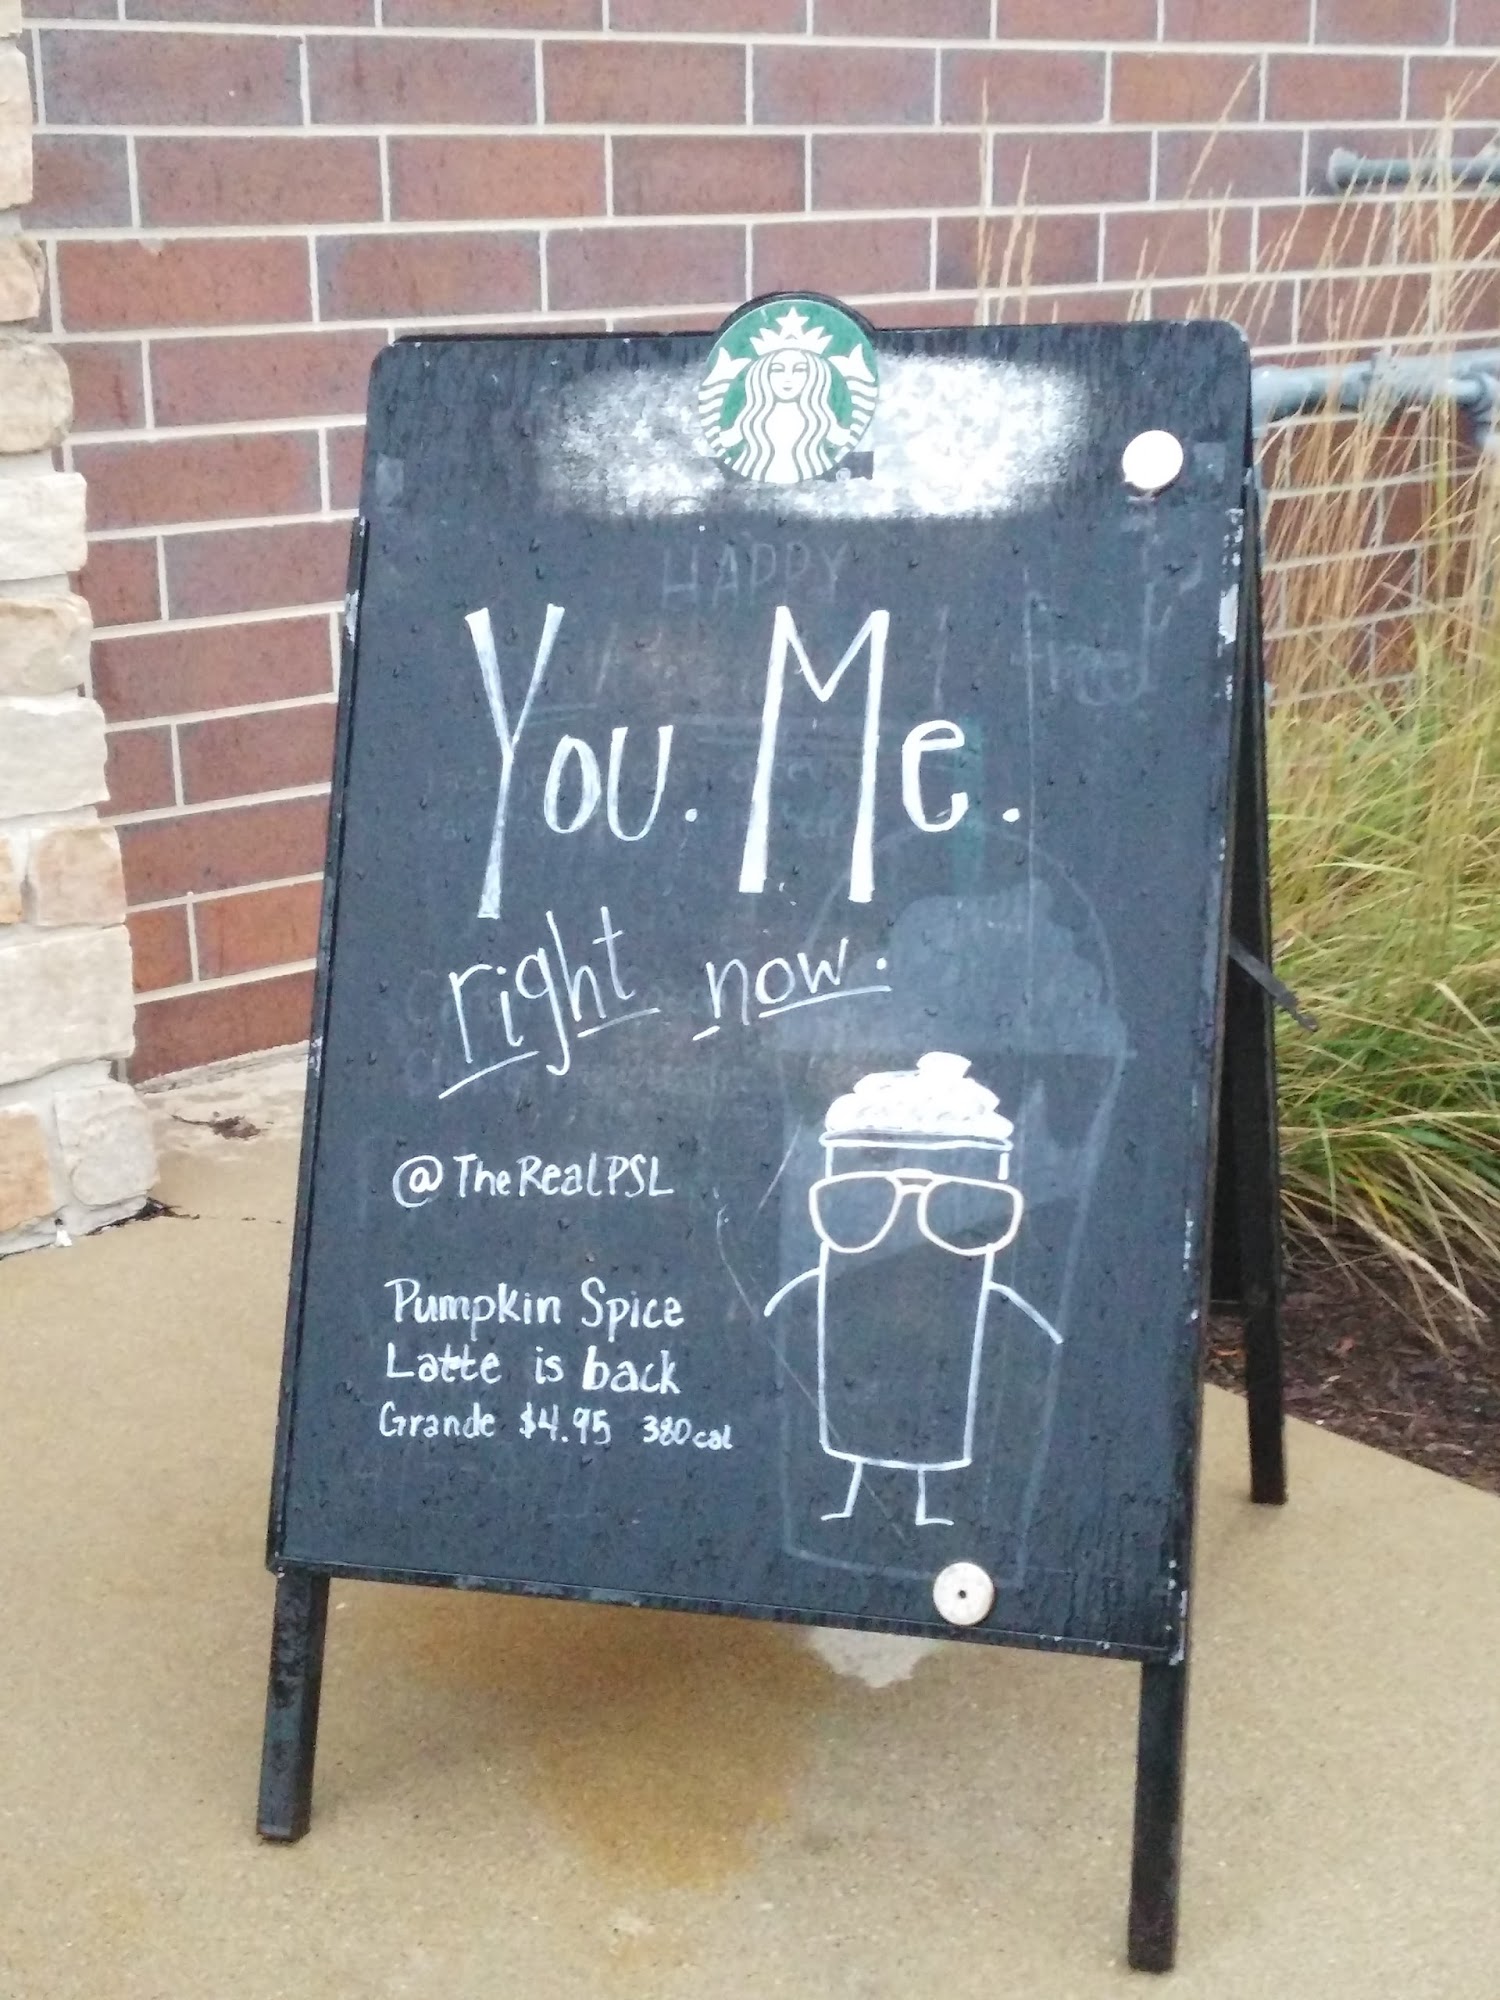 HAPPY
You. Me.
right now.
@TheRealPSL
Pumpkin Spice
Latte is back
Grande $4.95 380cal